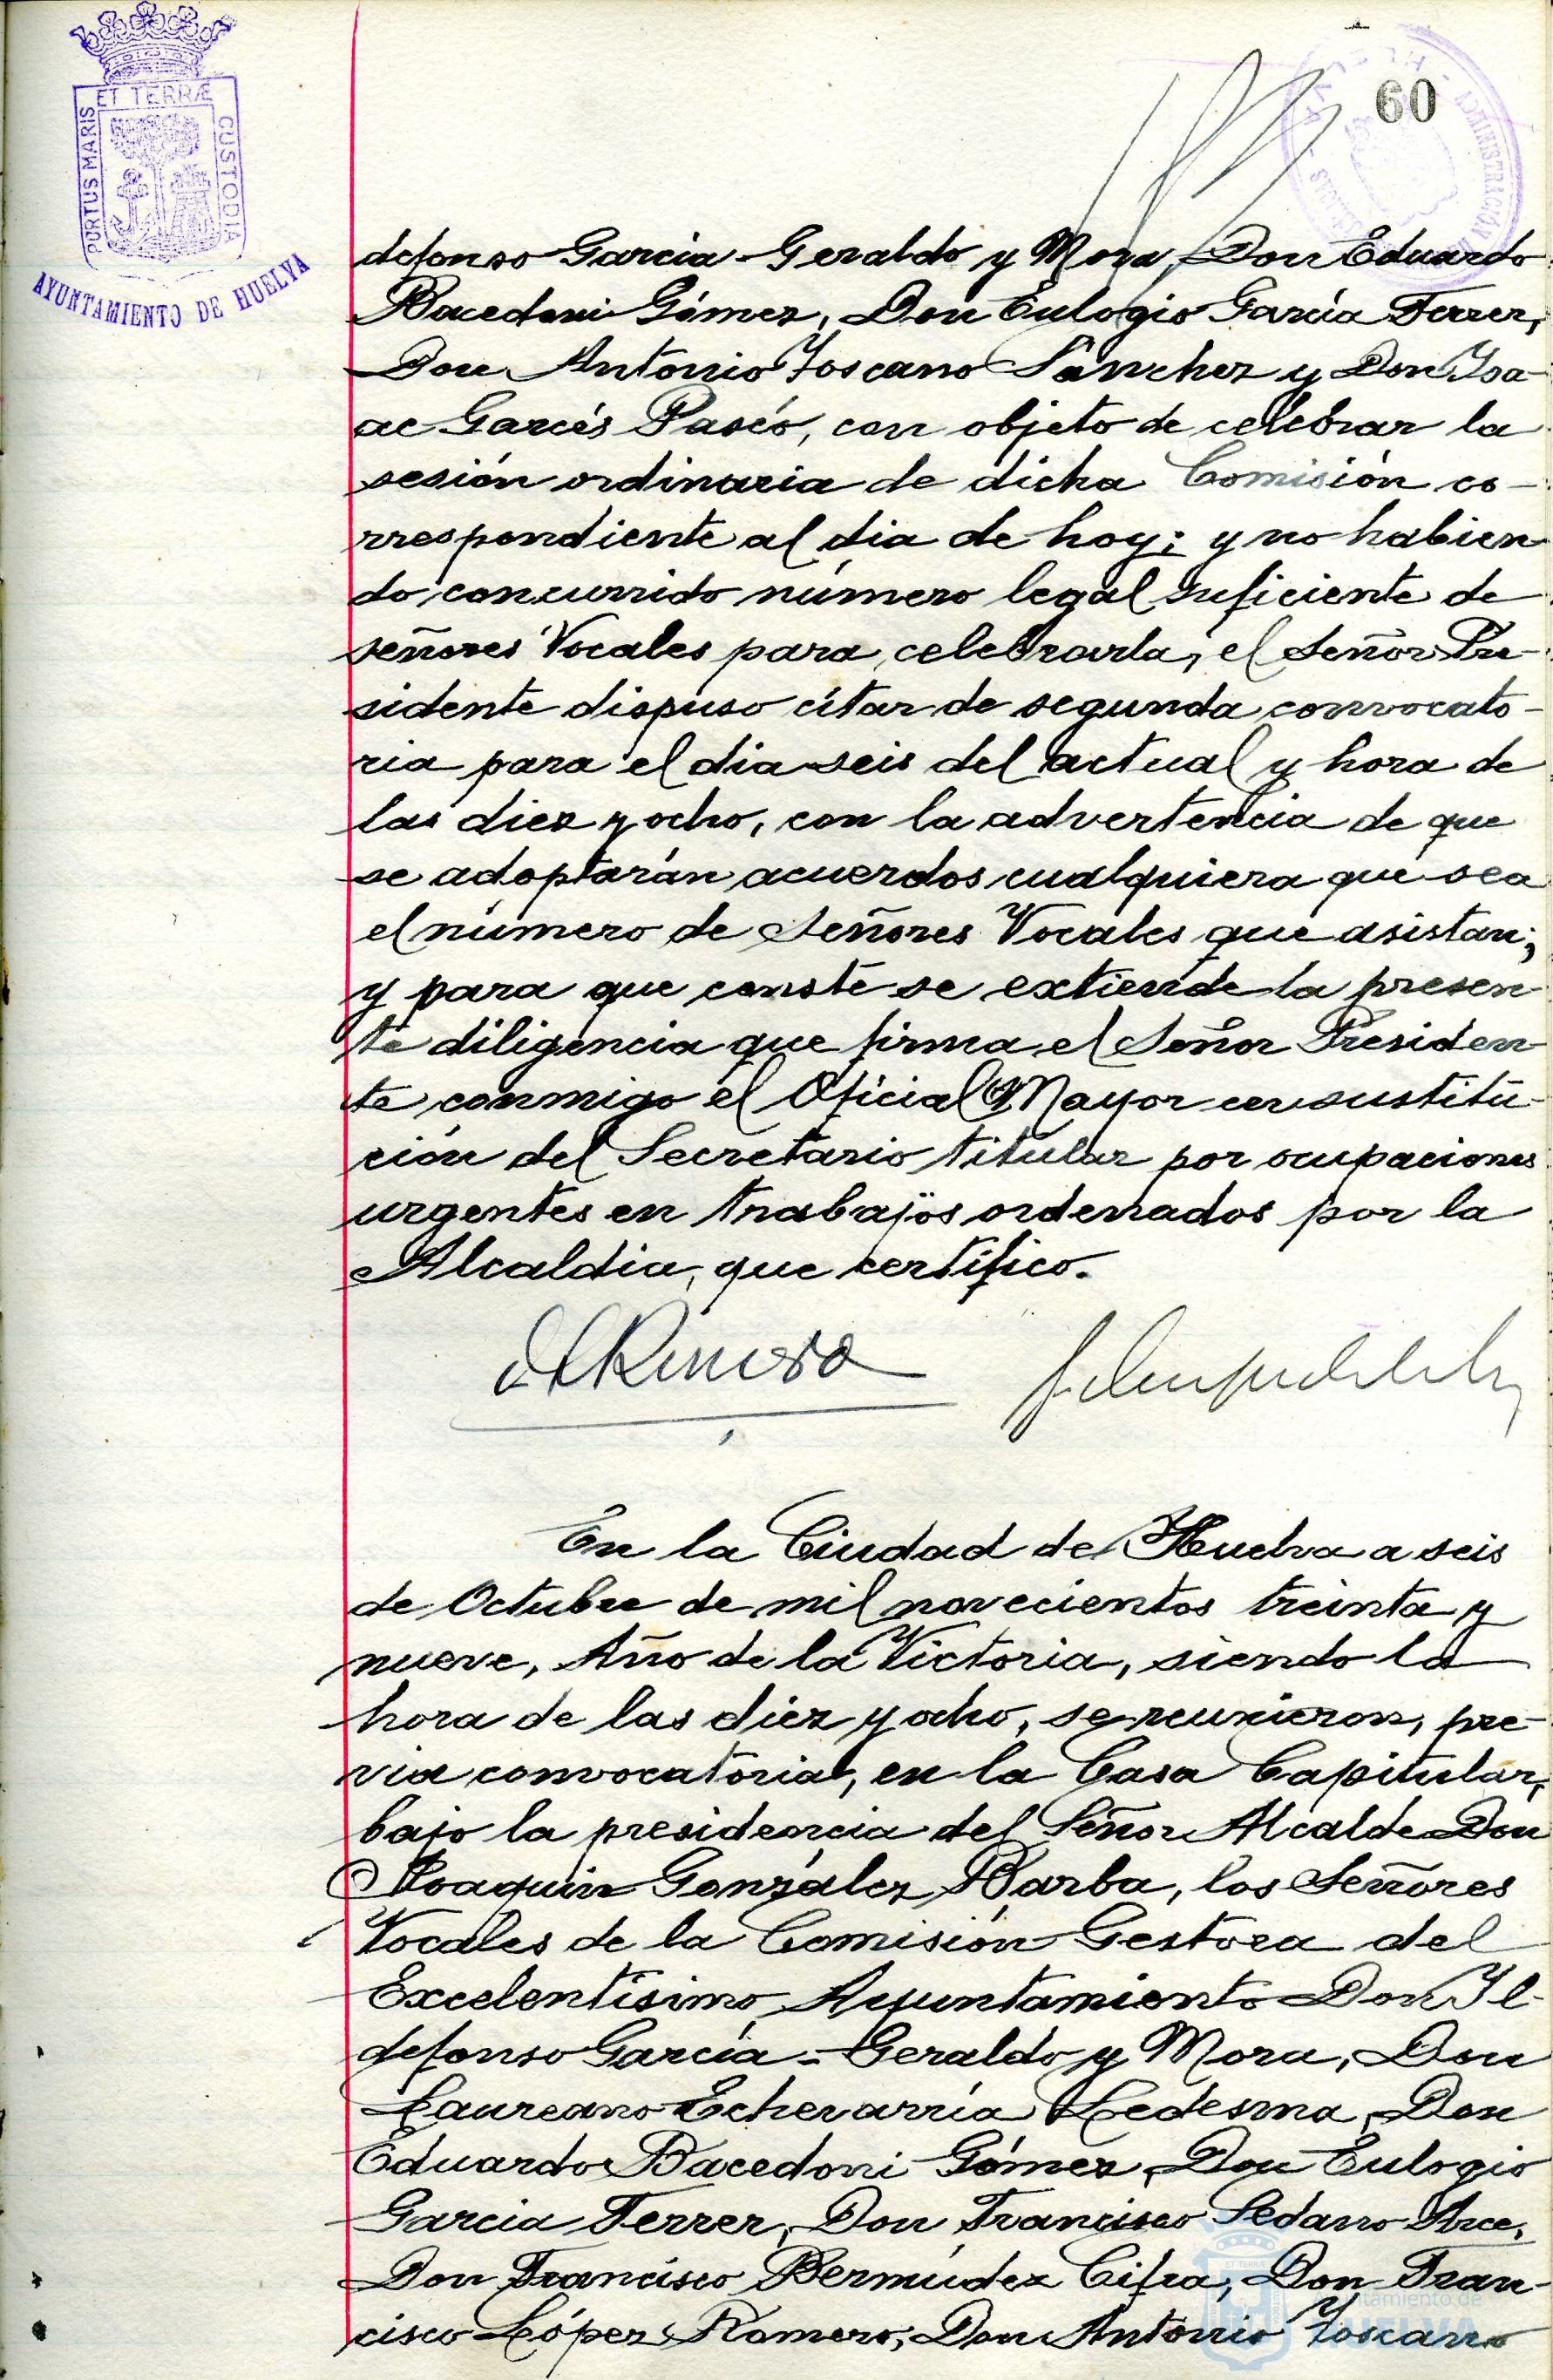 60
ET TERRÆ
PORTUS MARIS
CUSTODIA
AYUNTAMIENTO DE HUELVA
ADMINISTRACION
defonso Garcia-Geraldo y Mora, Don Eduardo
Bacedoni Gómez, Don Eulogio García Ferrer,
Don Antonio Toscano Sánchez y Don Isa-
ac Garcés Paseó, con objeto de celebrar la
sesión ordinaria de dicha Comisión co-
rrespondiente al dia de hoy; y no habien
do concurrido número legal suficiente de
señores Vocales para celebrarla, el Señor Pre-
sidente dispuso citar de segunda convocato-
ria para el dia seis del actual y hora de
las diez y ocho, con la advertencia de que
se adoptarán acuerdos cualquiera que sea
el número de Señores Vocales que asistan;
y para que conste se extiende la presen
te diligencia que firma el Señor Presiden
te conmigo el Oficial Mayor en sustitu-
ción del Secretario titular por ocupaciones
urgentes en trabajos ordenados por la
Alcaldia, que certifico.
En la Ciudad de Huelva a seis
de Octubre de mil novecientos treinta y
nueve, Año de la Victoria, siendo la
hora de las diez y ocho, se reunieron, pre-
via convocatoria, en la Casa Capitular,
bajo la presidencia del Señor Alcalde Don
Joaquin González Barba, los Señores
Vocales de la Comisión Gestora del
Excelentísimo Ayuntamiento Don Il-
defonso García-Geraldo y Mora, Don
Laureano Echevarría Ledesma, Don
Eduardo Bacedoni Gómez, Don Eulogio
Garcia Ferrer, Don Francisco Sedano Arce,
Don Francisco Bermúdez Cifra, Don Fran-
cisco López Romero, Don Antonio Toscano
Ayuntamiento de
HUELVA